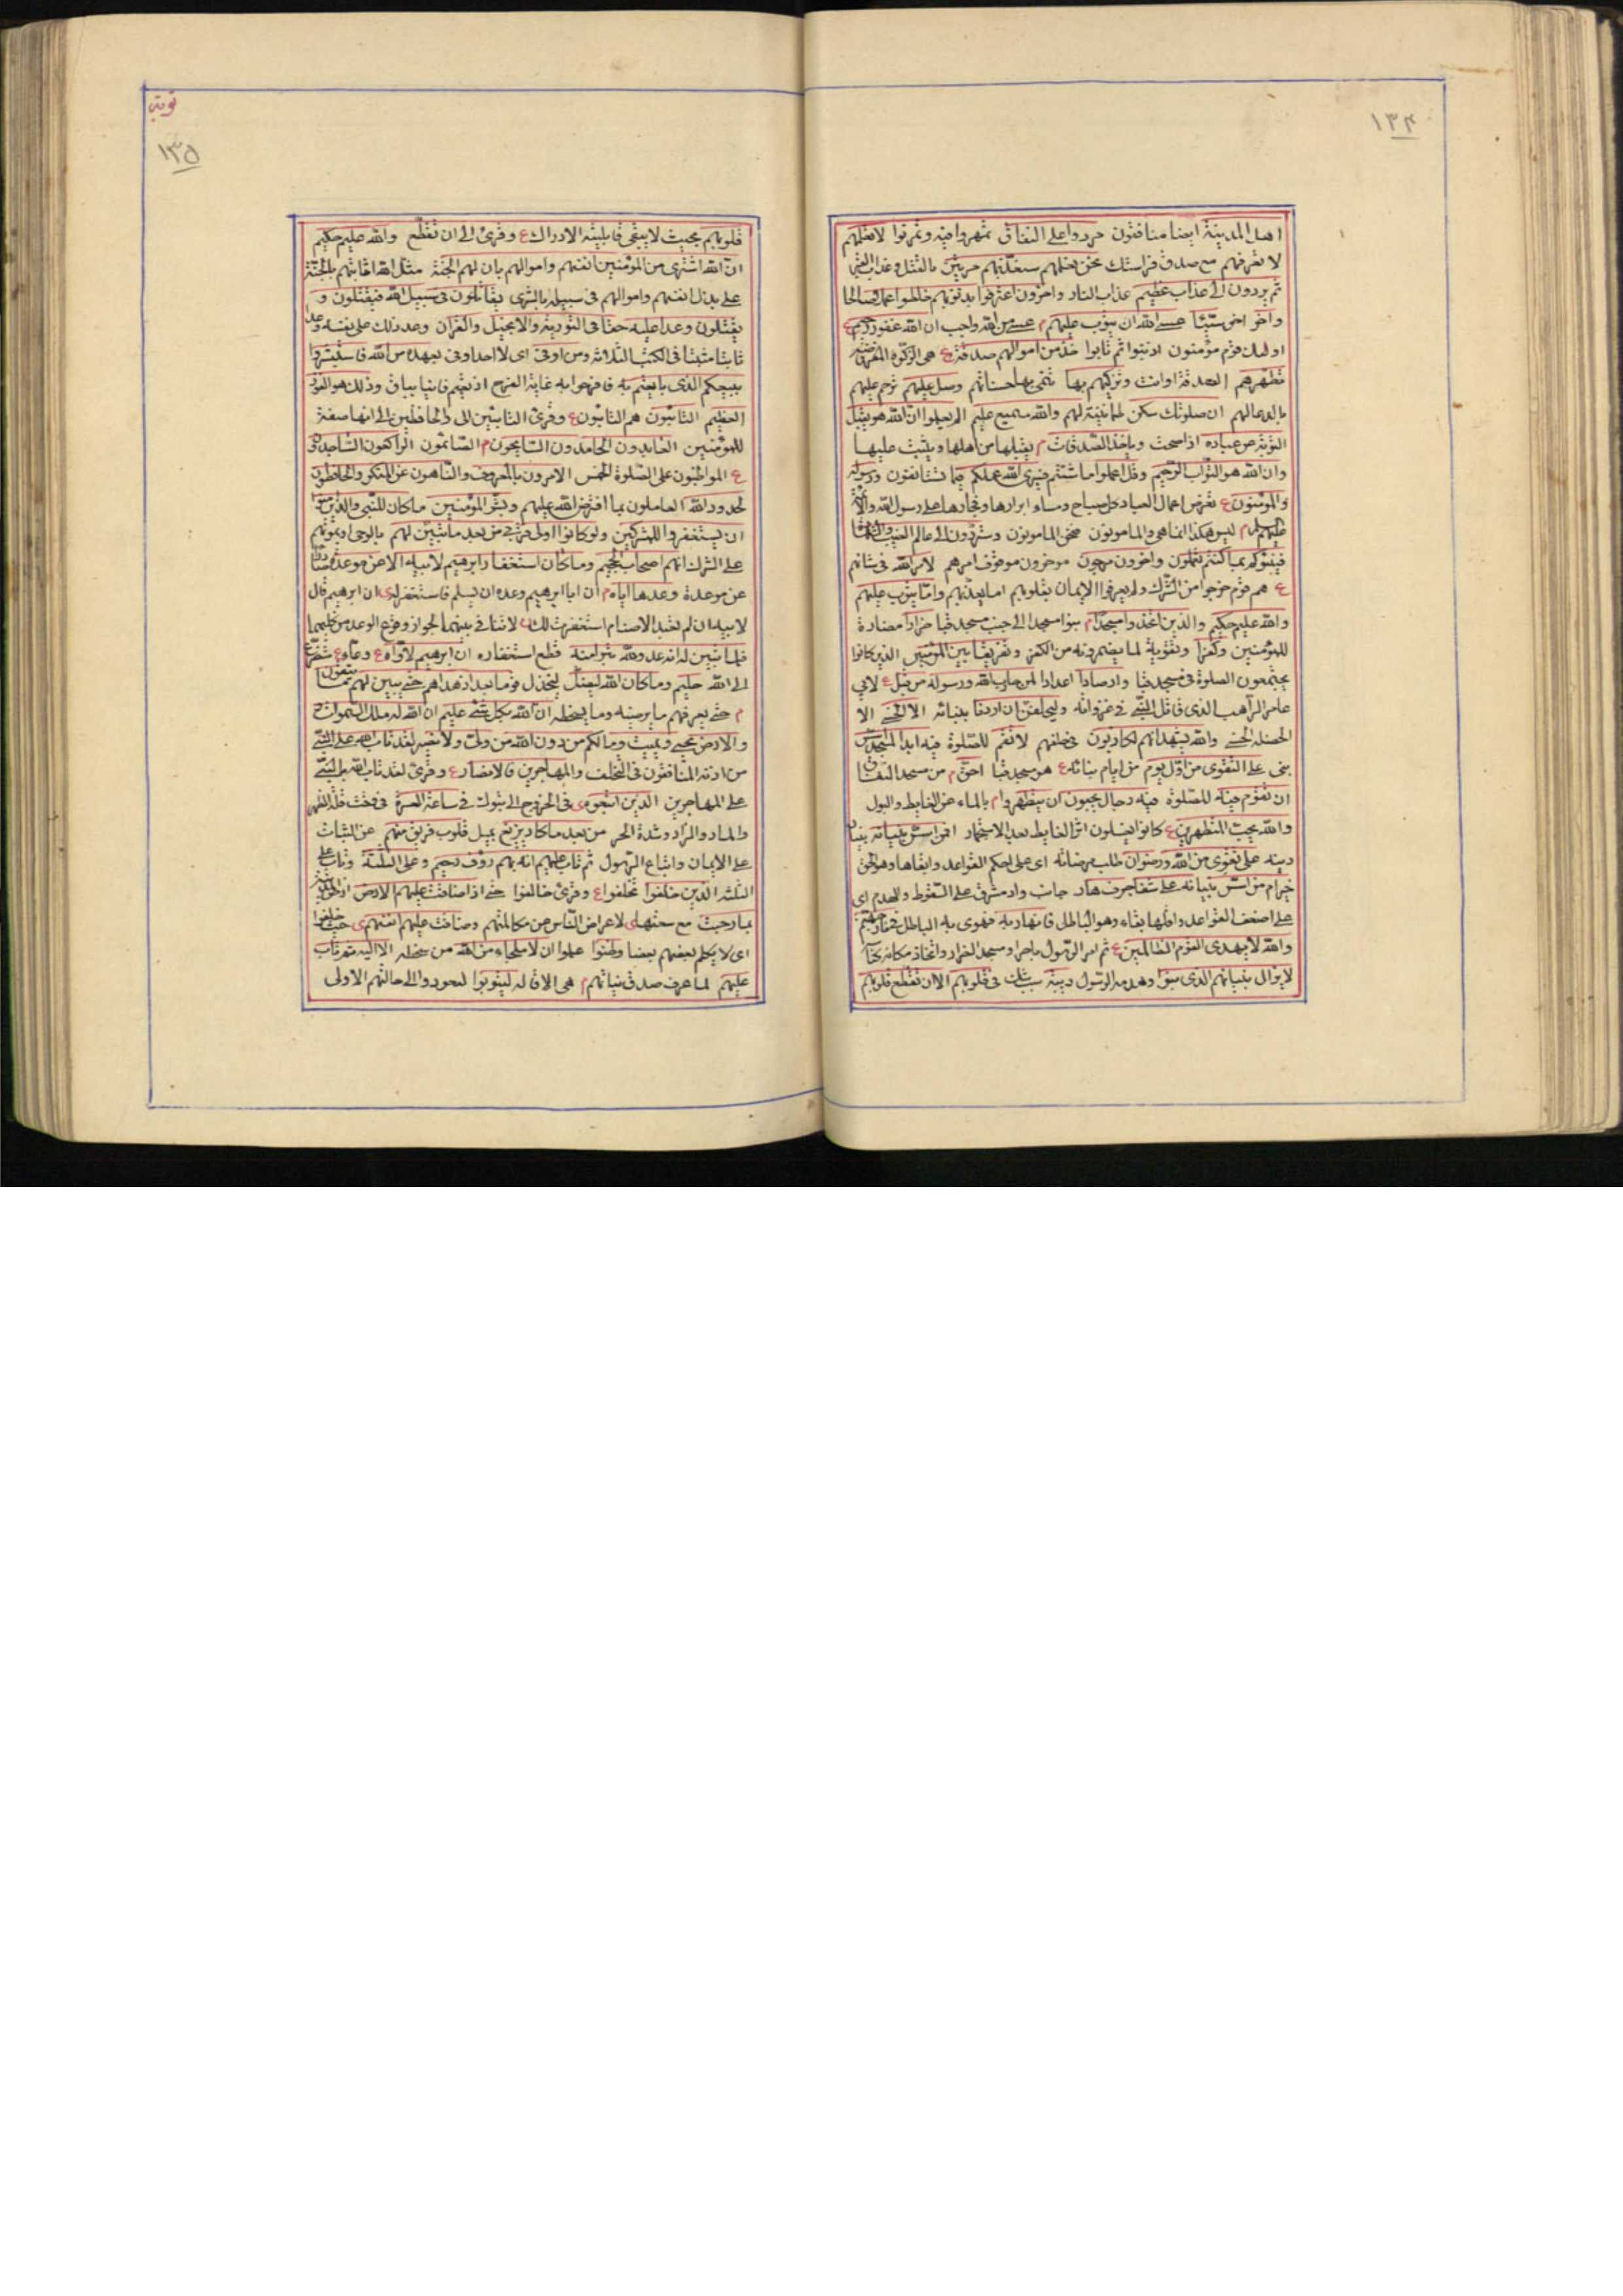 ١٣٤
اهل المدينة ايضا منافقون مردوا على النفاق تمهروا فيه وتمرنوا لا تعلمهم
لا تعرفهم مع صدق فراستك نحن نعلمهم سنعذبهم مرتين بالقتل وعذاب القبر
ثم يردون الى عذاب عظيم عذاب النار واخرون اعترفوا بذنوبهم خلطوا عملا صالحا
واخر اخر سيّئا عسى الله ان يتوب عليهم م عسى من الله واجب ان الله غفور رحيم ع
اولئك قوم مؤمنون اذنبوا ثم تابوا خذ من اموالهم صدقة ع هى الزكوة المفروضة
تطهرهم الصدقة او انت وتزكيهم بها تنمى بها حسناتهم وصل عليهم ترحم عليهم
بالدعا لهم ان صلوتك سكن طمانينة لهم والله سميع عليم الم يعلموا ان الله هو يقبل
التوبة عن عباده اذا صحت وياخذ الصدقات م يقبلها من اهلها ويثيب عليها
وان الله هو التواب الرحيم وقل اعملوا ما شئتم فسيرى الله عملكم فيما تستانفون ورسوله
والمؤمنون ع تعرض اعمال العباد كل صباح ومساء ابرارها وفجارها على رسول الله والائمة
عليهم السلام م ليس هكذا انما هى والمامونون فنحن المامونون وستردون الى عالم الغيب والشهادة
فينبّئكم بما كنتم تعملون واخرون مرجون موخرون موقوف امرهم لامر الله فى شانهم
ع هم قوم خرجوا من الشرك ولم يعرفوا الايمان بقلوبهم اما يعذبهم واما يتوب عليهم
والله عليم حكيم والذين اتخذوا مسجدا م بنوا مسجدا الى جنب مسجد قبا ضرارا مضادة
للمؤمنين وكفرا وتقوية لما يضمرونه من الكفر وتفريقا بين المؤمنين الذين كانوا
يجتمعون للصلوة فى مسجد قبا وارصادا اعدادا لمن حارب الله ورسوله من قبل ع لابى
عامر الراهب الذى قاتل النبى فى غزواته وليحلفن ان اردنا ببنائه الا الحسنى الا
الخصلة الحسنى والله يشهد انهم لكاذبون فى حلفهم لا تقم للصلوة فيه ابدا لمسجد اسس
بنى على التقوى من اول يوم من ايام بنائه ع هو مسجد قبا احق م من مسجد النفاق
ان تقوم فيه للصلوة فيه رجال يحبون ان يتطهروا م بالماء عن الغايط والبول
والله يحب المتطهرين ع كانوا يغسلون اثر الغايط بعد الاستجمار افمن اسس بنيانه بنيان
دينه على تقوى من الله ورضوان طلب مرضاته اى على احكم القواعد وابقاها وهو الحق
خير ام من اسس بنيانه على شفا جرف هار جانب واد مشرف على السقوط والهدم اى
على اضعف القواعد واقلها بقاء وهو الباطل فانهار به فهوى به الباطل فى نار جهنم
والله لا يهدى القوم الظالمين ع ثم امر الرسول باحراق مسجد الضرار واتخاذ مكانه كناسة
لا يزال بنيانهم الذى بنوا وهدمه الرسول ريبة سبب شك فى قلوبهم الا ان تقطع قلوبهم
توبة
١٣٥
قلوبهم بحيث لا يبقى قابلية الادراك ع وقرئ الى ان تقطع والله عليم حكيم
ان الله اشترى من المؤمنين انفسهم واموالهم بان لهم الجنة مثّل الله اثابتهم بالجنة
على بذل انفسهم واموالهم فى سبيله بالشرى يقاتلون فى سبيل الله فيقتلون و
يقتلون وعدا عليه حقا فى التورية والانجيل والقران وعد ذلك على نفسه وعدا
ثابتا مثبتا فى الكتب الثلاثة ومن اوفى اى لا احد اوفى بعهده من الله فاستبشروا
ببيعكم الذى بايعتم به فافرحوا به غاية الفرح اذ بعتم فانيا بباق وذلك هو الفوز
العظيم التائبون هم التائبون ع وقرئ التائبين الى والحافظين على انها صفة
للمؤمنين العابدون الحامدون السايحون م الصائمون الراكعون الساجدون
ع المواظبون على الصلوة الخمس الامرون بالمعروف والناهون عن المنكر والحافظون
لحدود الله العاملون بما افترض الله عليهم وبشر المؤمنين ما كان للنبى والذين امنوا
ان يستغفروا للمشركين ولو كانوا اولى قربى من بعد ما تبين لهم بالوحى او بموتهم
على الشرك انهم اصحاب الجحيم وما كان استغفار ابرهيم لابيه الا عن موعدة
عن موعدة وعدها اياه م ان ابا ابرهيم وعده ان يسلم فاستغفر له ى ان ابرهيم قال
لابيه ان لم تعبد الاصنام استغفرت لك لا تنافى بينهما لجواز وقوع الوعد من كليهما
فلما تبين له انه عدو لله تبرا منه قطع استغفاره ان ابرهيم لاواه ع دعاء متضرع
الى الله حليم وما كان الله ليضل ليخذل قوما بعد اذ هداهم حتى يبين لهم ما يتقون
م حتى يعرفهم ما يرضيه وما يسخطه ان الله بكل شئ عليم ان الله له ملك السموات
والارض يحيى ويميت وما لكم من دون الله من ولى ولا نصير لقد تاب الله على النبى
من اذنه المنافقون فى التخلف والمهاجرين والانصار ع وقرئ لقد تاب الله بالنبى
على المهاجرين الذين اتبعوه فى الخروج الى تبوك فى ساعة العسرة فى وقت قلة الظهر
والماء والزاد وشدة الحر من بعد ما كاد يزيغ يميل قلوب فريق منهم عن الثبات
على الايمان واتباع الرسول ثم تاب عليهم انه بهم رؤف رحيم وعلى الثلثة وتاب على
الثلثة الذين خلفوا تخلفوا ع وقرئ خالفوا حتى اذا ضاقت عليهم الارض
بما رحبت مع سعتها ى لاعراض الناس عن مكالمتهم وضاقت عليهم انفسهم ى حيث حلفوا
اى لا يكلم بعضهم بعضا وظنوا علموا ان لا ملجاء من الله من سخطه الا اليه ثم تاب
عليهم لما عرف صدق نياتهم م هى الاقالة ليتوبوا ليعودوا الى حالتهم الاولى